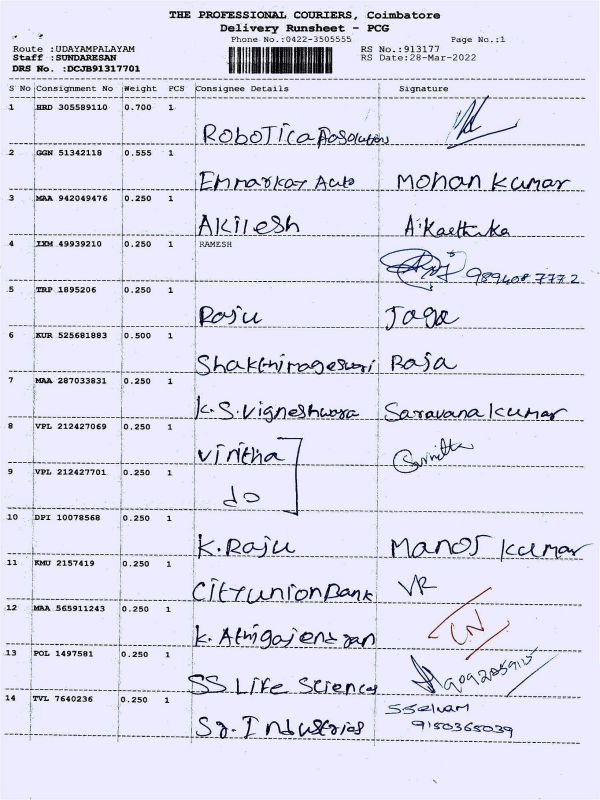 THE PROFESSIONAL COURIERS, Coimbatore
Delivery Runsheet - PCG
Phone No.:0422-3505555 Page No.:1
Route :UDAYAMPALAYAM RS No.:913177
Staff :SUNDARESAN RS Date:28-Mar-2022
DRS No. :DCJB91317701
S No Consignment No Weight PCS Consignee Details Signature
1 HRD 305589110 0.700 1
Robotica
2 GGN 51342118 0.555 1
Emmarkay Auto Mohan Kumar
3 MAA 942049476 0.250 1
Akilesh
4 IXM 49939210 0.250 1 RAMESH
9894087772
5 TRP 1895206 0.250 1
Raju Jaga
6 KUR 525681883 0.500 1
Raja
7 MAA 287033831 0.250 1
K.S.Vigneshwara Saravana Kumar
8 VPL 212427069 0.250 1
Viritha
9 VPL 212427701 0.250 1
do
10 DPI 10078568 0.250 1
K.Raju Manoj Kumar
11 KMU 2157419 0.250 1
City Union Bank VR
12 MAA 565911243 0.250 1
13 POL 1497581 0.250 1
SS Life Sciences
14 TVL 7640236 0.250 1 SSelvam
Sg. Industries 9150365039